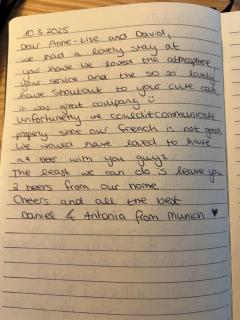 10.5.2025
Dear Anne-Lise and David,
we had a lovely stay at
your house we loved the atmosphere,
your service and the so so lovely
house shoutout to your cute cat,
it was great company ☺
Unfortunetly we couldn't communicate
properly since our french is not good
We would have loved to have
a beer with you guys.
The least we can do is leave you
2 beers from our home
Cheers and all the best
Daniel & Antonia from Munich ♥